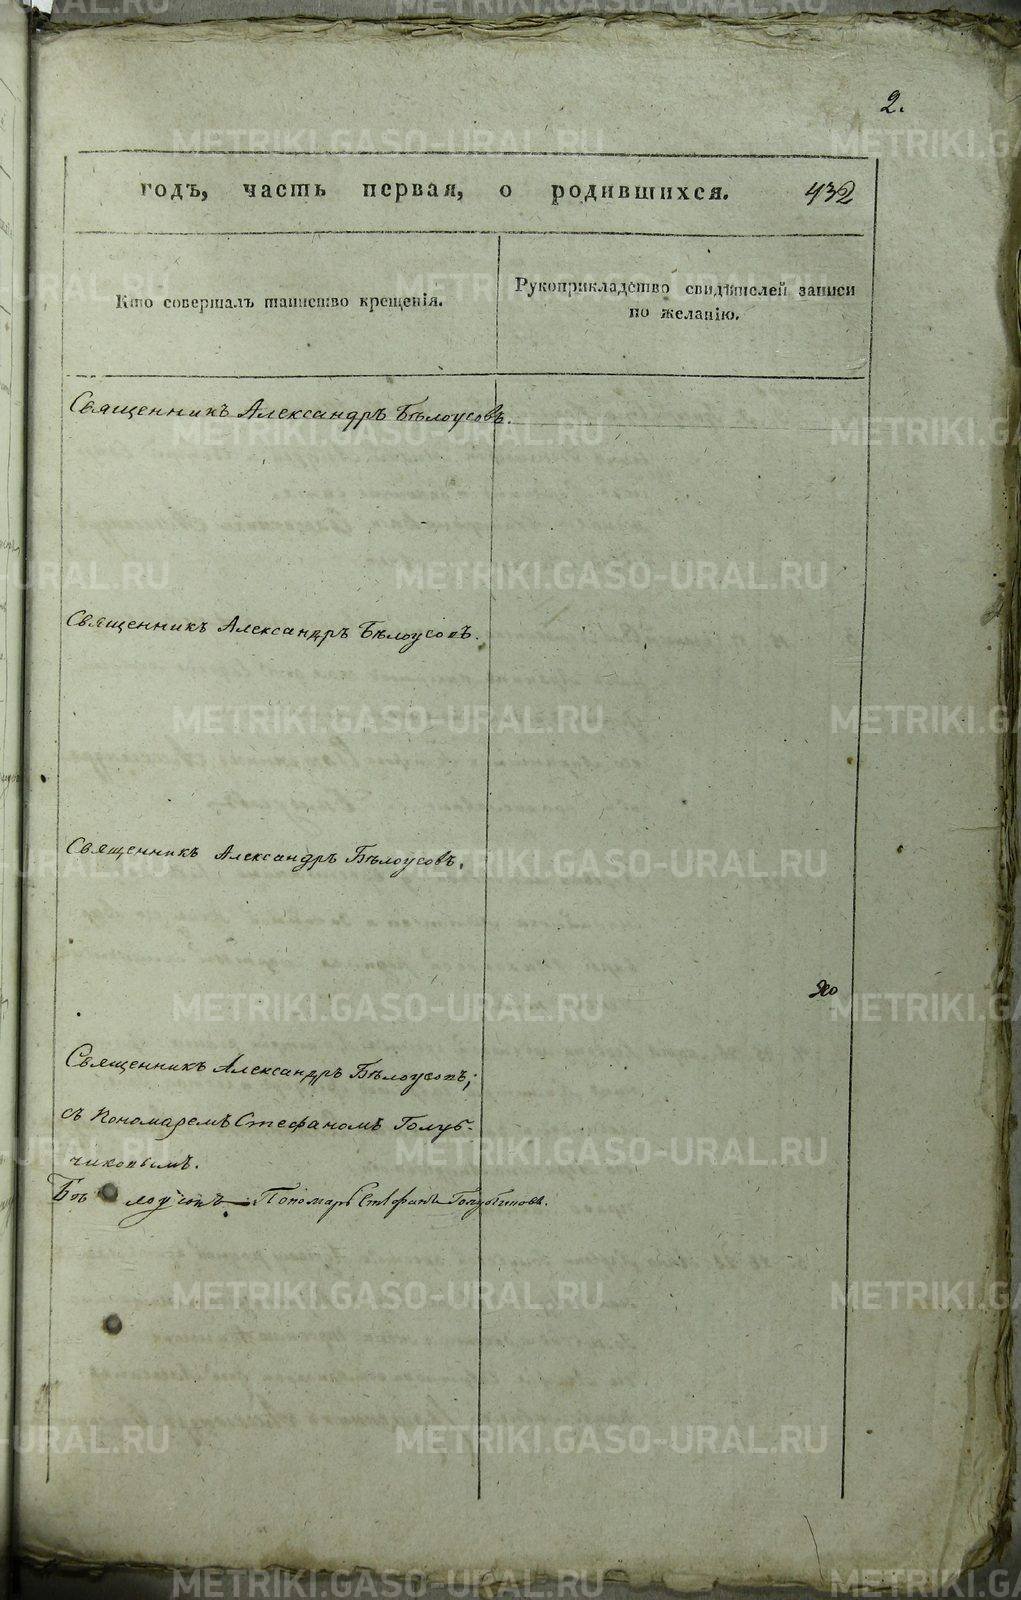 2.
годъ, часть первая, о родившихся. 432
Кто совершалъ таинство крещенія.
Рукоприкладство свидѣтелей записи
по желанію.
Священникъ Александръ Бѣлоусовъ.
Священникъ Александръ Бѣлоусовъ.
Священникъ Александръ Бѣлоусовъ.
Священникъ Александръ Бѣлоусовъ;
съ Пономаремъ Стефаномъ Голуб-
чиковымъ.
Бѣ лоусовъ — Пономарь Стефанъ
METRIKI.GASO-URAL.RU